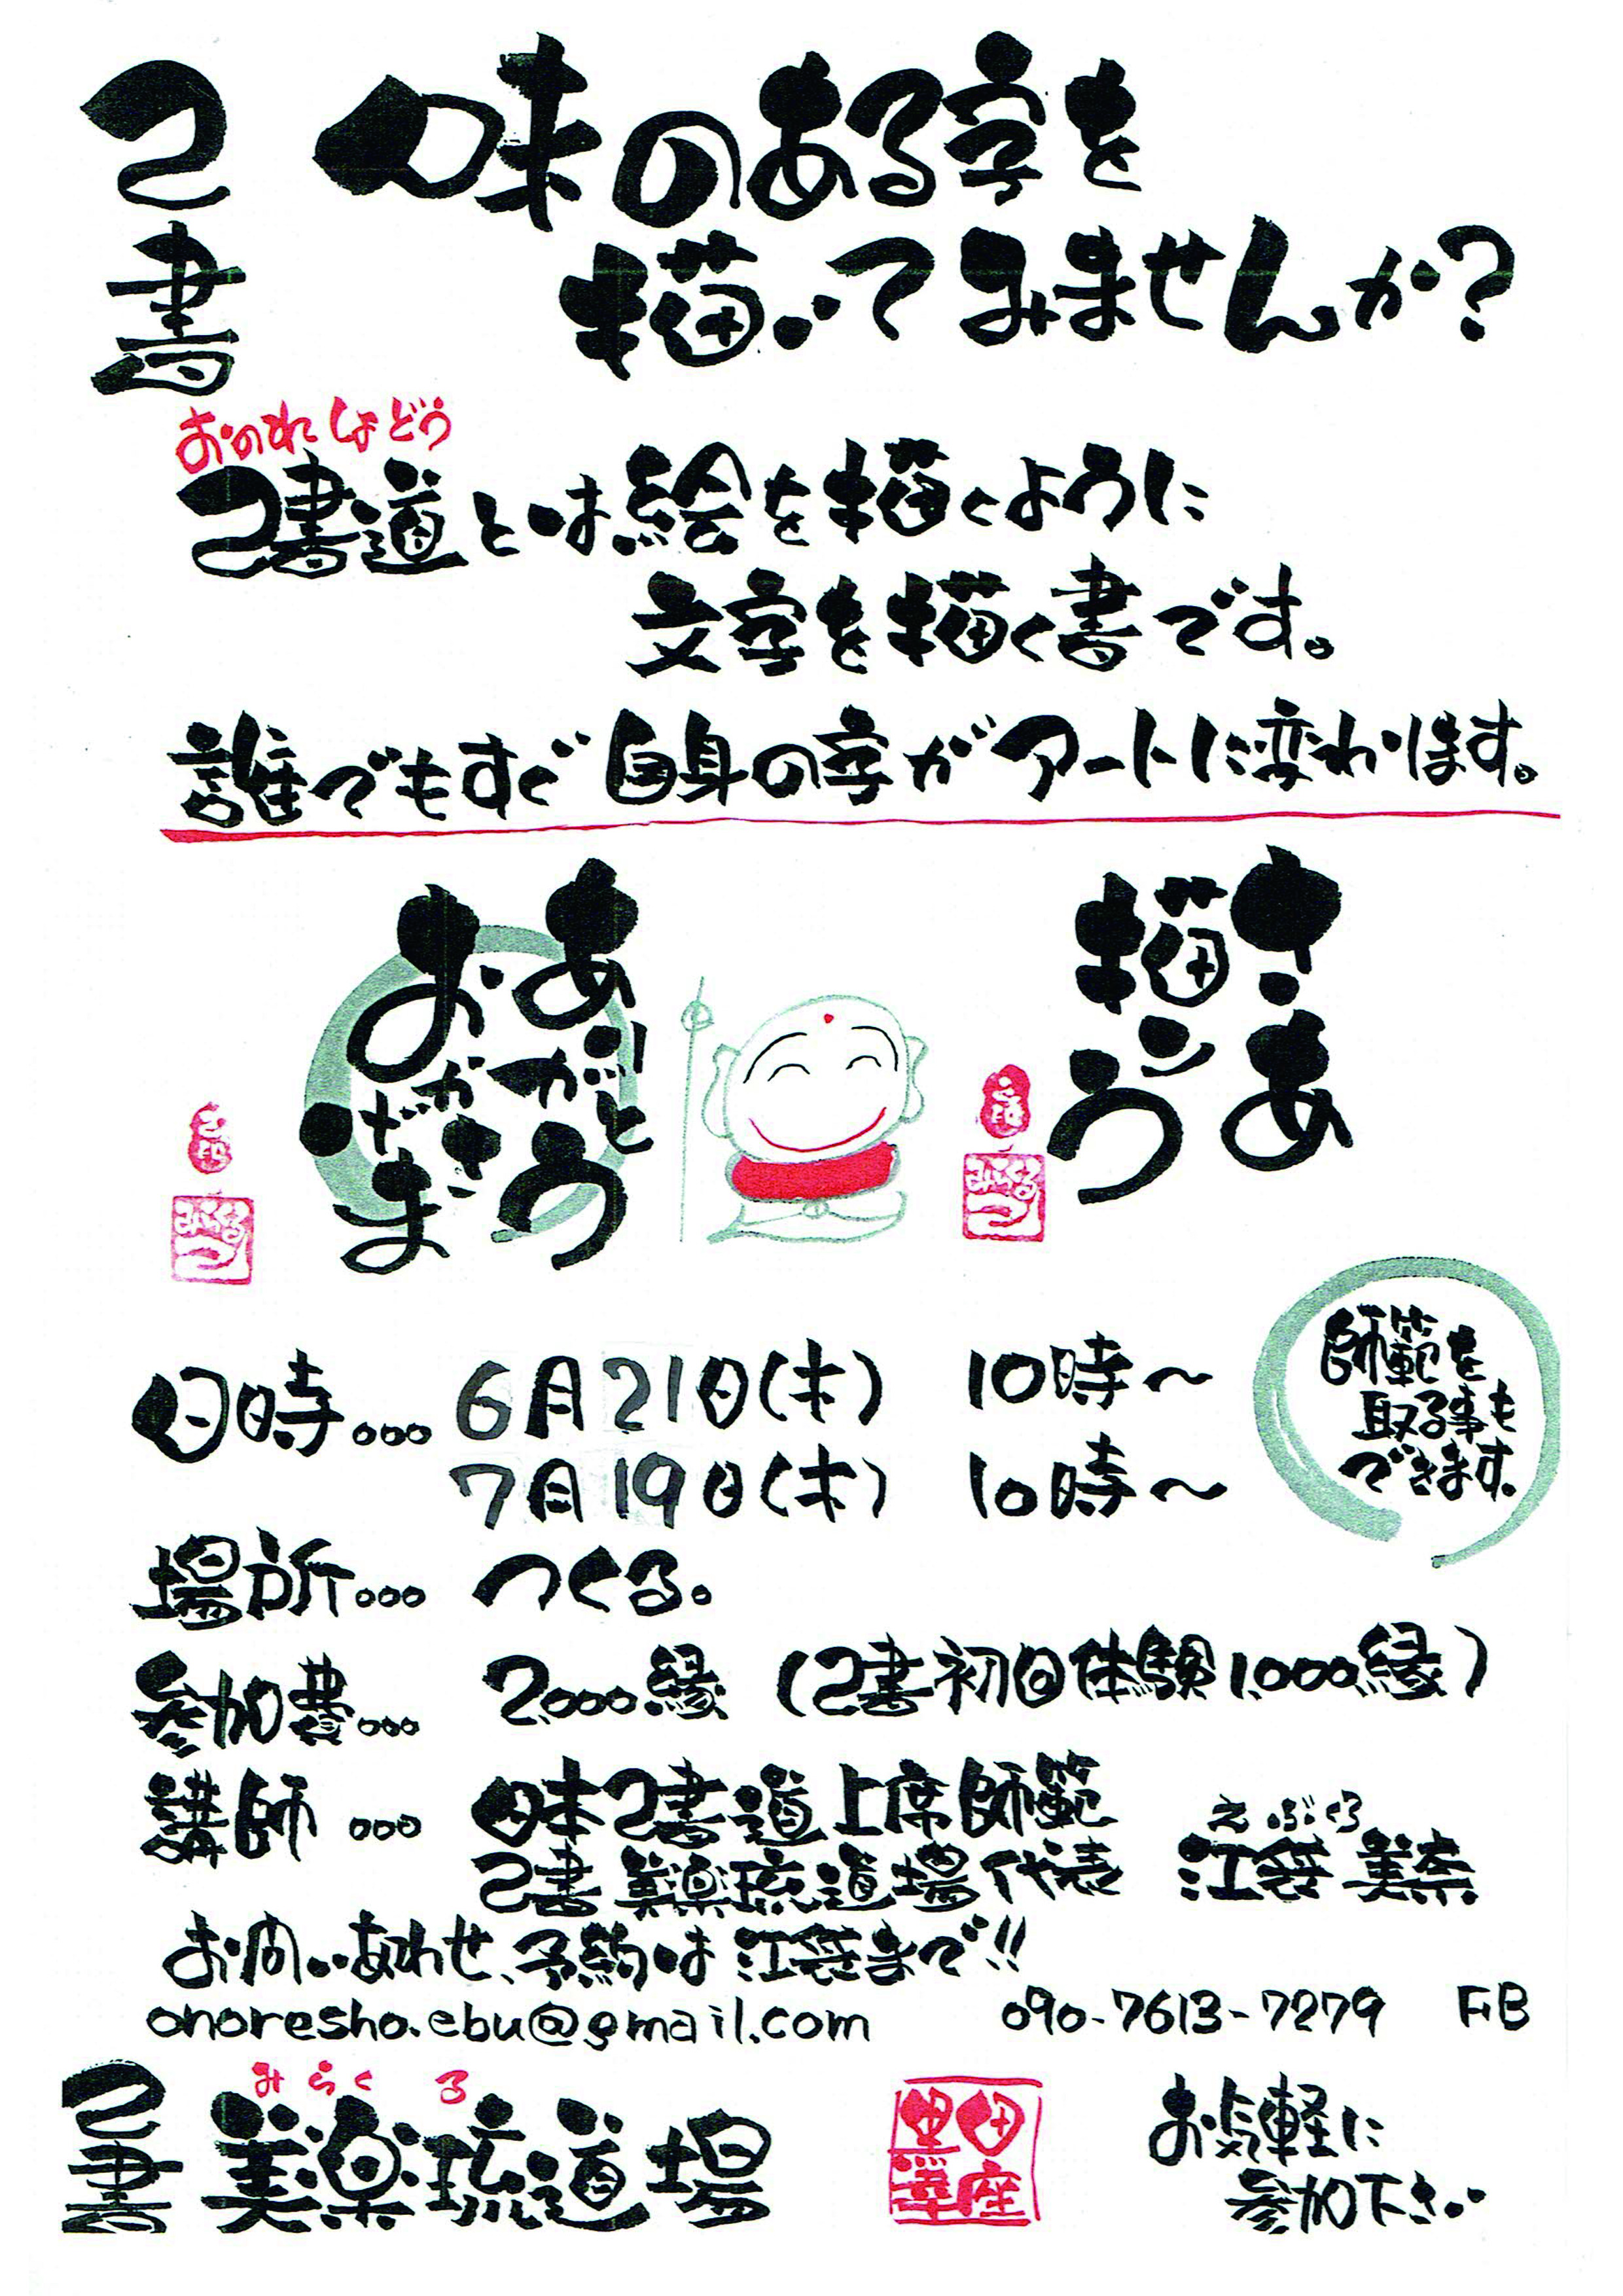 己書
味のある字を
描いてみませんか?
おのれしょどう
己書道とは絵を描くように
文字を描く書です。
誰でもすぐ自身の字がアートに変わります。
ありがとう
おかげさま
さあ
描こう
みらくる
みらくる
師範を
取る事も
できます。
日時... 6月21日(木) 10時~
7月19日(木) 10時~
場所... つくる。
参加費... 2,000縁 (己書初回体験1,000縁)
講師... 日本己書道上席師範
えぶくろ
己書美楽琉道場代表 江袋美奈
お問いあわせ、予約は江袋まで!!
onoresho.ebu@gmail.com 090-7613-7279 FB
みらくる
己書美楽琉道場
お気軽に
参加下さい